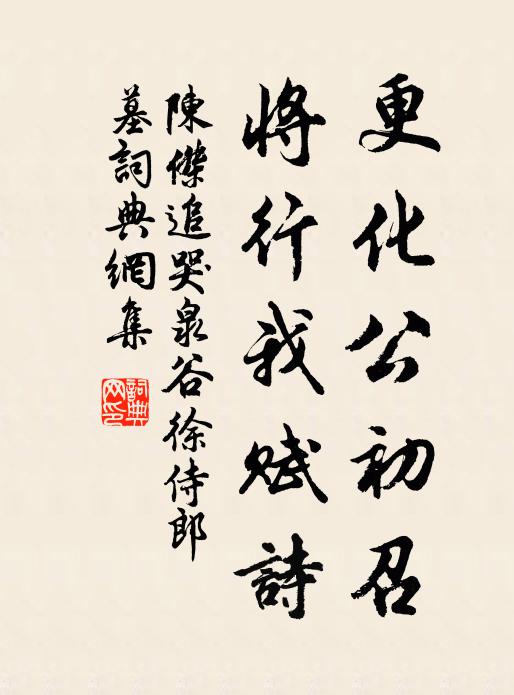 更化公初召
將行我賦詩
陳傑追哭泉谷徐侍郎
墓詞典網集
詞典
网印